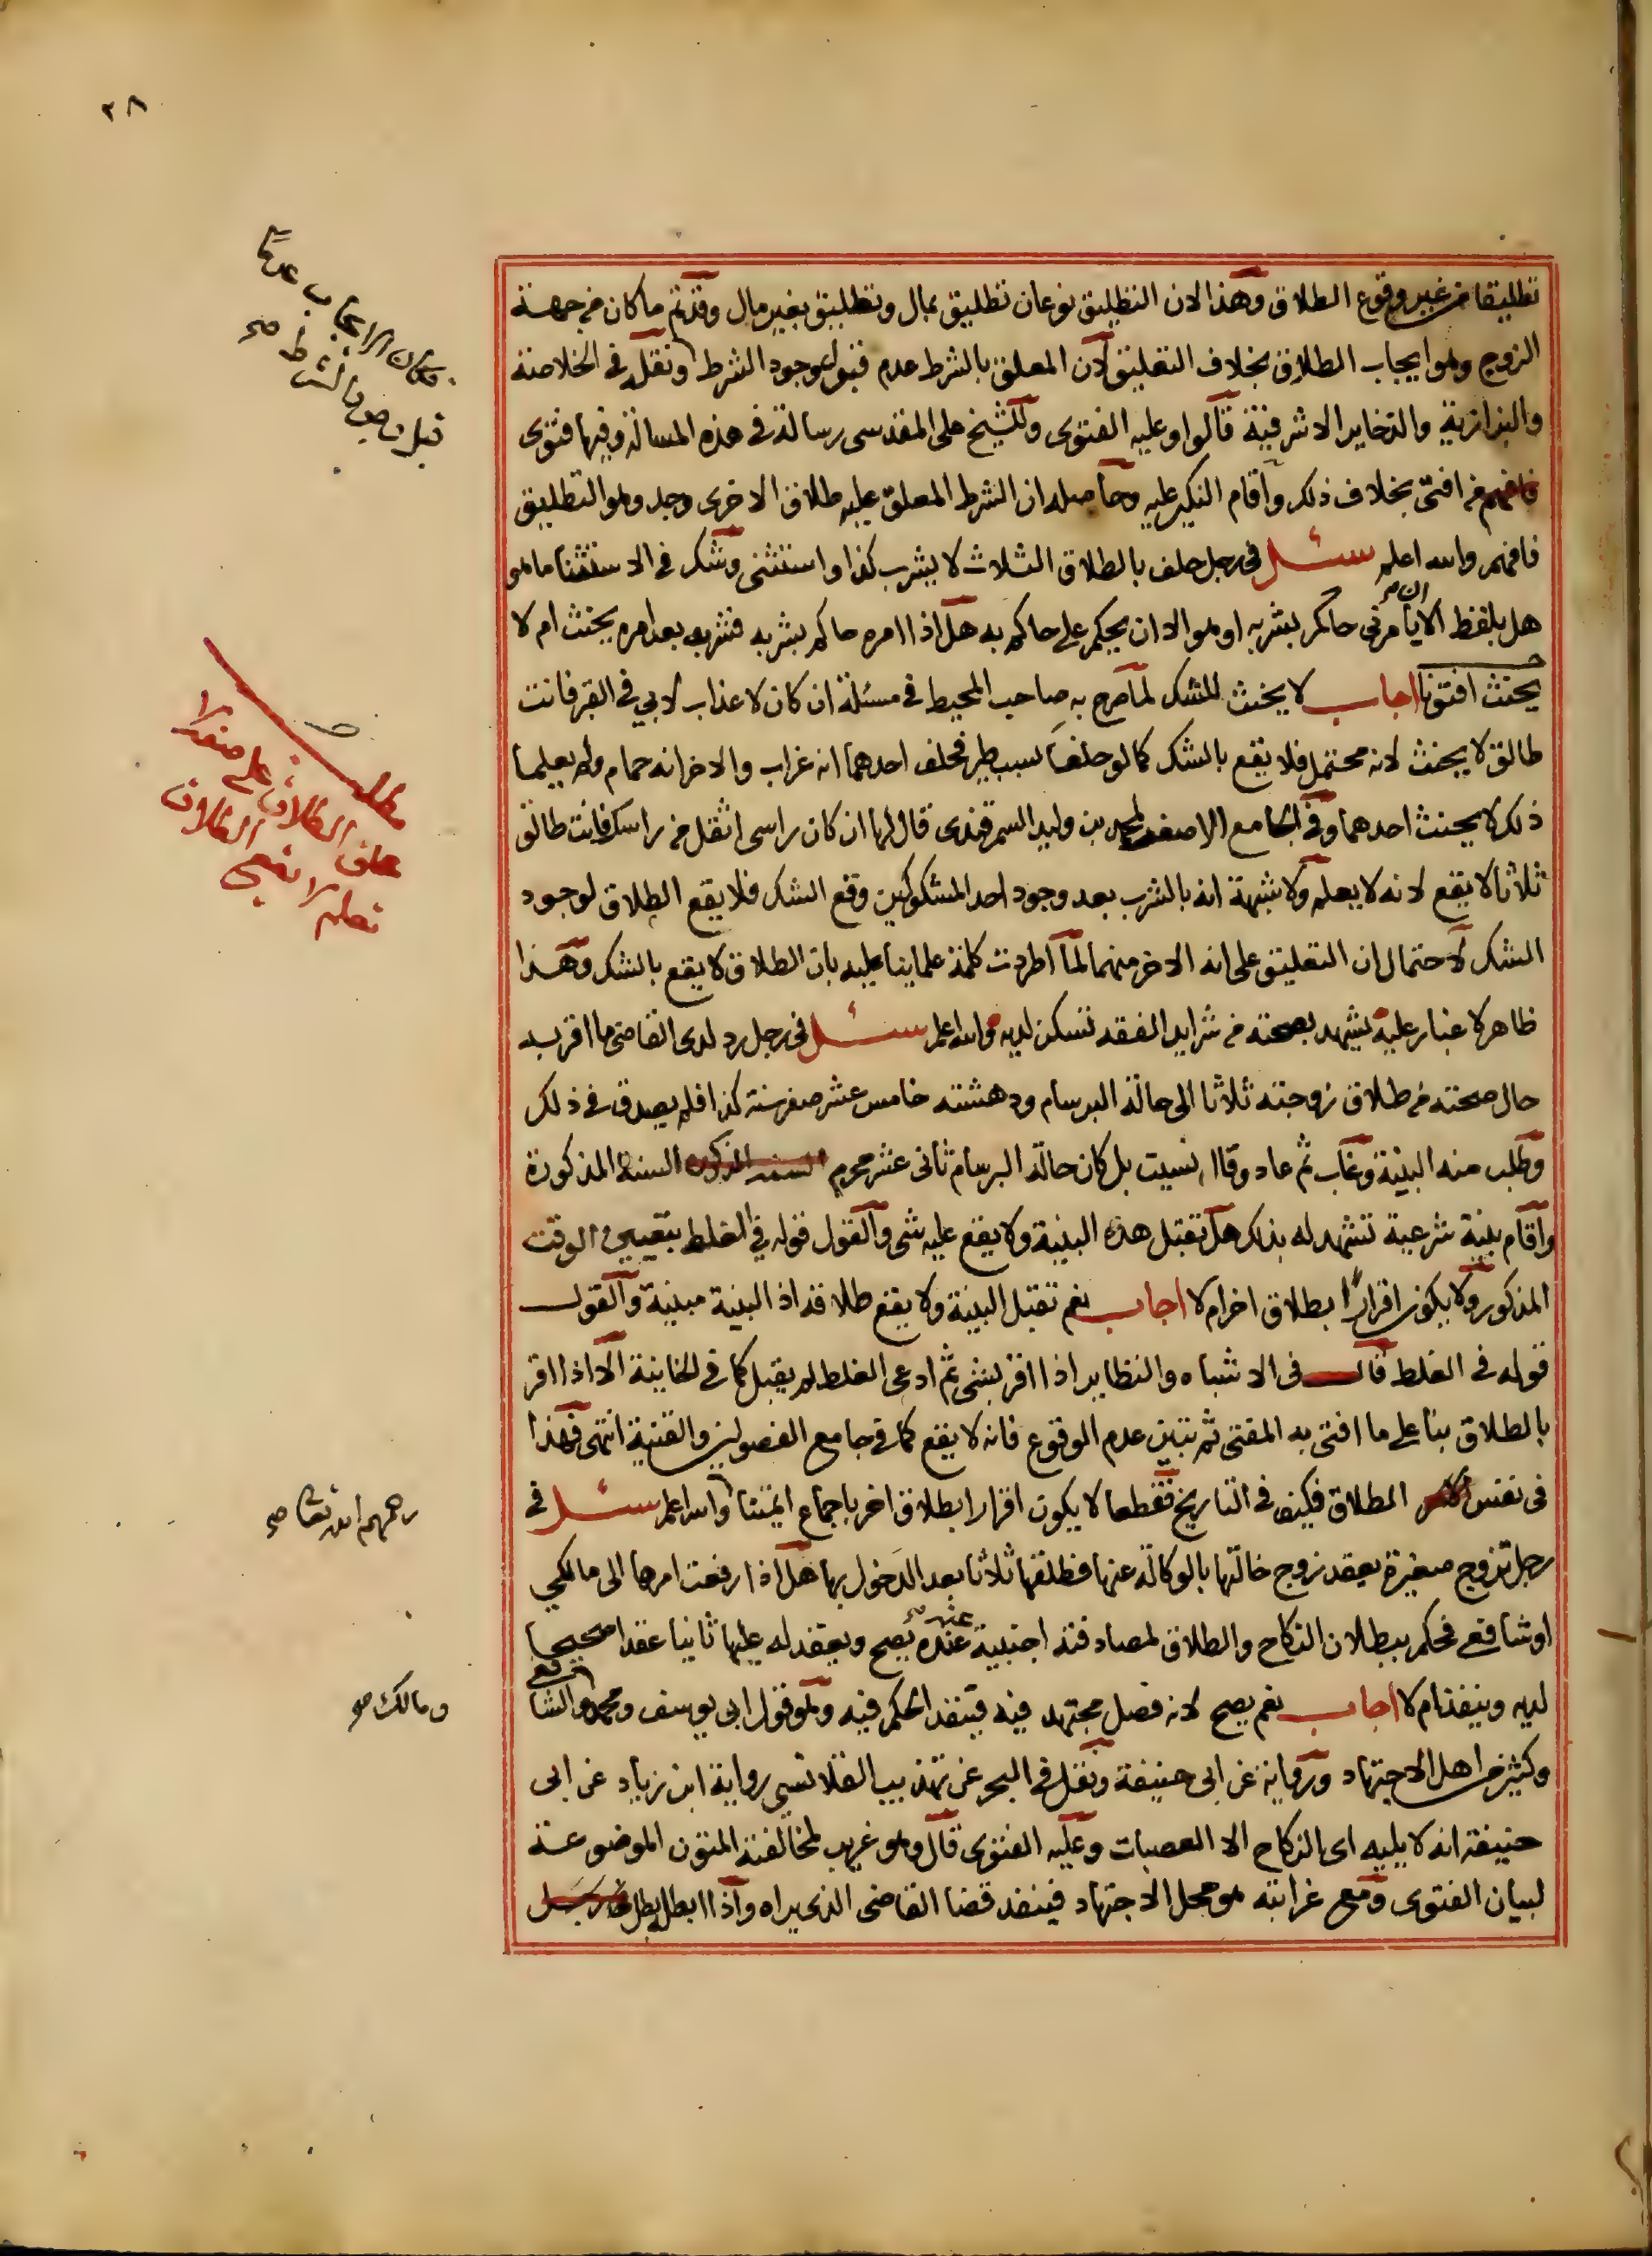 ٢٨
تطليقا من غير وقوع الطلاق وهذا لان التطليق نوعان تطليق بمال وتطليق بغير مال وقد تم ما كان من جهة
الزوج وهو ايجاب الطلاق بخلاف التعليق لان المعلق بالشرط عدم قبل وجود الشرط ونقله في الخلاصة
والبزازية والذخاير الاشرفية قالوا وعليه الفتوى وللشيخ على المقدسى رسالة في هذه المسالة وفيها فتوى
من افتى بخلاف ذلك واقام النكير عليه وحاصله ان الشرط المعلق عليه طلاق الاخرى وجد وهو التطليق
فافهم والله اعلم سئل في رجل حلف بالطلاق الثلاث لا يشرب كذا واستثنى وشك في الاستثنا ما هو
هل بلفظ الا ان يأمرني حاكم بشربه او هو الا ان يحكم على حاكم به هل اذا امره حاكم بشربه فشربه بعد امره يحنث ام لا
يحنث افتونا اجاب لا يحنث للشك لما صرح به صاحب المحيط في مسئلة ان كان لا عذاب لابي في القبر فانت
طالق لا يحنث لانه محتمل فلا يقع بالشك كما لو حلفا بسبب طير فحلف احدهما انه غراب والاخر انه حمام ولم يعلما
ذلك لا يحنث احدهما وفي الجامع الاصغر لمحمد بن وليد السمرقندى قال لها ان كان راسى اثقل من راسك فانت طالق
ثلاثا لا يقع لانه لا يعلم ولا شبهة انه بالشرب بعد وجود احد المشكوكين وقع الشك فلا يقع الطلاق لوجود
الشك لاحتمال ان التعليق على انه الاخر منهما لما اطردت كلمة علماينا عليه بان الطلاق لا يقع بالشك وهذا
ظاهر لا غبار عليه يشهد بصحته من شرايد الفقه تسكن لديه والله اعلم سئل في رجل رد لدى القاضى ما اقر به
حال صحته من طلاق زوجته ثلاثا الى حالة البرسام ودهشته خامس عشر صفر سنة كذا فلم يصدق في ذلك
وطلب منه البينة وغاب ثم عاد وقال نسيت بل كان حالة البرسام ثاني عشر محرم السنة المذكورة
واقام بينة شرعية تشهد له بذلك هل تقبل هذه البينة ولا يقع عليه شى والقول قوله في الغلط بتعيين الوقت
المذكور ولا يكون اقرارًا بطلاق اخر ام لا اجاب نعم تقبل البينة ولا يقع طلاقه اذ البينة مبينة والقول
قوله في الغلط قال في الاشباه والنظاير اذا اقر بشى ثم ادعى الغلط لم يقبل كما في الخانية الا اذا اقر
بالطلاق بنا على ما افتى به المفتى ثم تبين عدم الوقوع فانه لا يقع كما في جامع الفصولين والقنية انتهى فهذا
في نفس الطلاق فكيف في التاريخ فقطعا لا يكون اقرارا بطلاق اخر باجماع ايمتنا والله اعلم سئل في
رجل تزوج صغيرة بعقد زوج خالتها بالوكالة عنها فطلقها ثلاثا بعد الدخول بها هل اذا رفعت امرها الى مالكي
او شافعي فحكم ببطلان النكاح والطلاق لمصادفته اجنبية عنده يصح ويعقد له عليها ثانيا عقدا صحيحا
لديه وينفذ ام لا اجاب نعم يصح لانه فصل مجتهد فيه فينفذ الحكم فيه وهو قول ابي يوسف ومحمد والشافعي
وكثير من اهل الاجتهاد ورواية عن ابي حنيفة ونقل في البحر عن تهذيب القلانسي رواية ابن زياد عن ابى
حنيفة انه لا يليه اى النكاح الا العصبات وعليه الفتوى قال وهو غريب لمخالفته المتون الموضوعة
لبيان الفتوى ومع غرابته هو محل الاجتهاد فينفذ قضا القاضى الذى يراه واذا ابطل بطل
فكان الايجاب عدمًا
قبل وجود الشرط صح
مطلب
حلف الطلاق على
الطلاق
رحمهم الله تعالى صح
ومالك صح